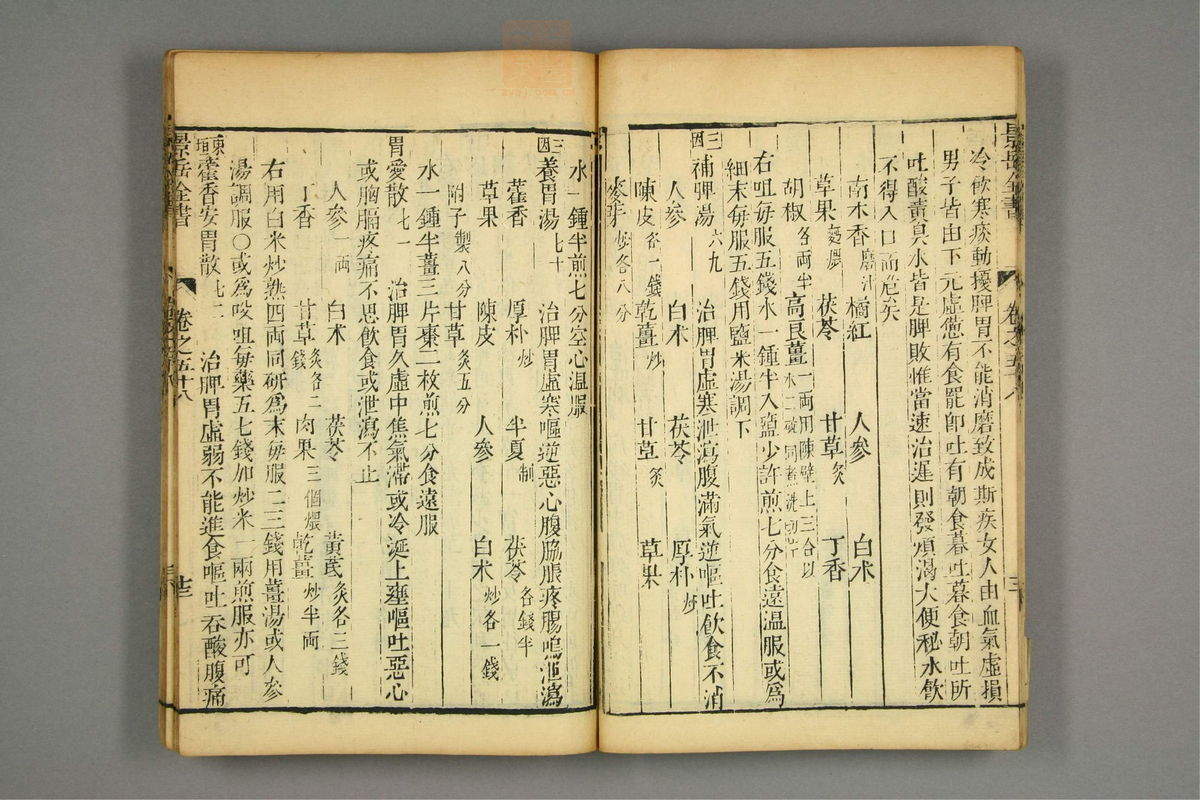 冷飲寒痰動擾脾胃不能消磨致成斯疾女人由血氣虛損
男子皆由下元虛憊有食罷卽吐有朝食暮吐暮食朝吐所
吐酸黃臭水皆是脾敗惟當速治遲則發煩渴大便秘水飲
不得入口而危矣
南木香磨汁 橘紅 人參 白朮
草果麵煨 茯苓 甘草炙 丁香
胡椒各兩半 高良薑一兩用陳壁土三合以水二碗同煮洗切片
右咀每服五錢水一鍾半入鹽少許煎七分食遠溫服或爲
細末每服五錢用鹽米湯調下
三因補脾湯六九 治脾胃虛寒泄瀉腹滿氣逆嘔吐飲食不消
人參 白朮 茯苓 厚朴炒
陳皮各一錢 乾薑炒 甘草炙 草果
麥芽炒各八分
景岳全書 卷之五十八
水一鍾半煎七分空心溫服
三因養胃湯七十 治脾胃虛寒嘔逆惡心腹脇脹疼腸鳴泄瀉
藿香 厚朴炒 半夏制 茯苓各錢半
草果 陳皮 人參 白朮炒各一錢
附子製八分 甘草炙五分
水一鍾半薑三片棗二枚煎七分食遠服
胃愛散七一 治脾胃久虛中焦氣滯或冷涎上壅嘔吐惡心
或胸膈疼痛不思飲食或泄瀉不止
人參一兩 白朮 茯苓 黃芪炙各三錢
丁香 甘草炙各二錢 肉果三個煨 乾薑炒半兩
右用白米炒熟四兩同研爲末每服二三錢用薑湯或人參
湯調服○或爲㕮咀每藥五七錢加炒米一兩煎服亦可
東垣藿香安胃散七二 治脾胃虛弱不能進食嘔吐吞酸腹痛
景岳全書 卷之五十八